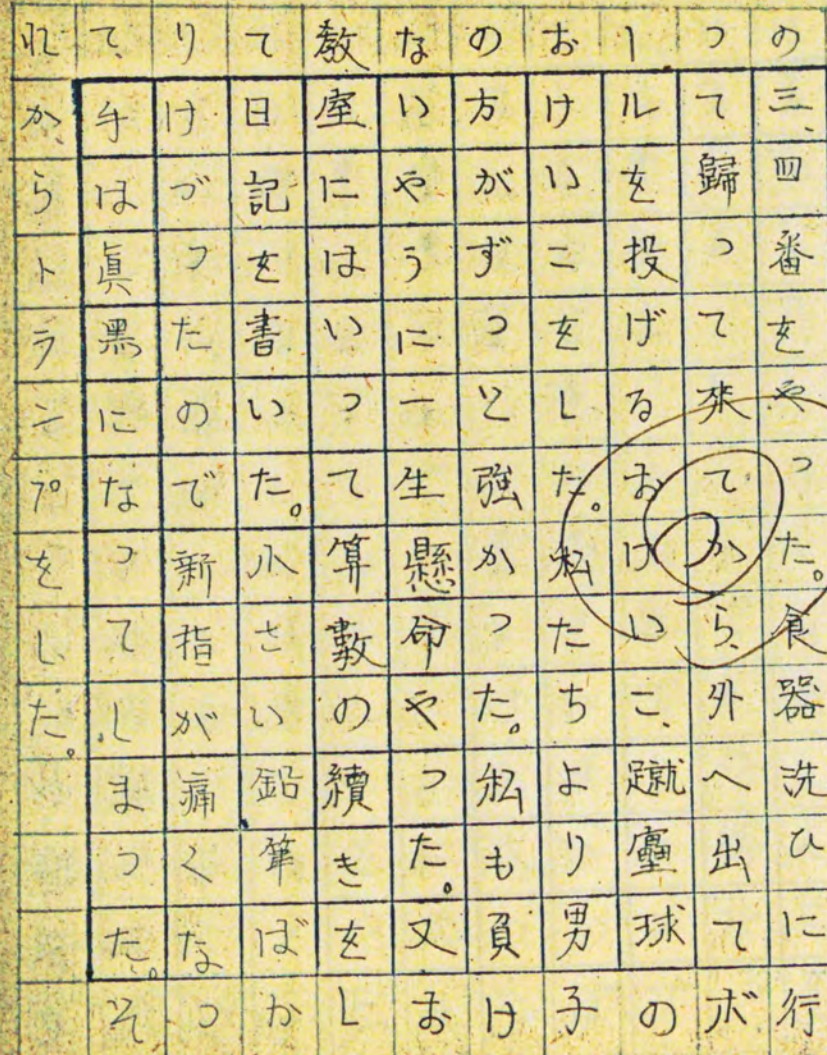 の三、四番をやつた。食器洗ひに行
つて歸つて來てから、外へ出てボ
ールを投げるおけいこ、蹴壘球の
おけいこをした。私たちより男子
の方がずつと強かつた。私も負け
ないやうに一生懸命やつた。又お
教室にはいつて算數の續きをし
て日記を書いた。小さい鉛筆ばか
りけづつたので新指が痛くなつ
て、手は眞黒になつてしまつた。そ
れから、トランプをした。